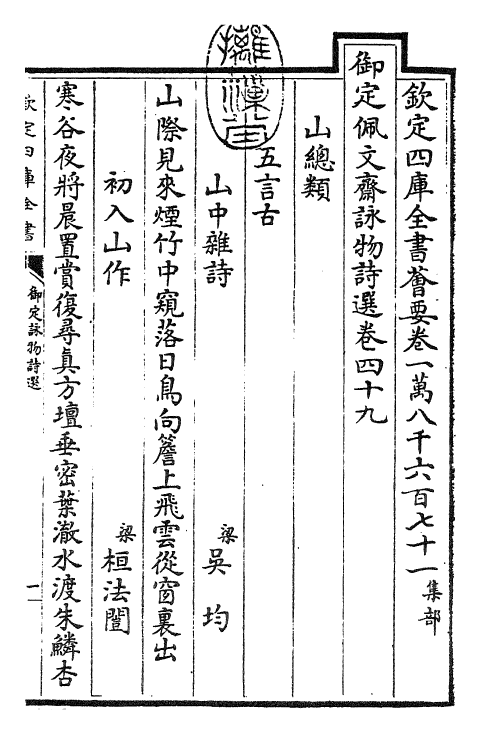 欽定四庫全書薈要卷一萬八千六百七十一集部
御定佩文齋詠物詩選卷四十九
山總類
五言古
山中雜詩 梁 吳均
山際見來煙竹中窺落日鳥向簷上飛雲從窗裏出
初入山作 梁 桓法闓
寒谷夜將晨置賞復尋眞方壇垂密葉澈水渡朱鱗杏
欽定四庫全書
御定詠物詩選
一
摛藻堂